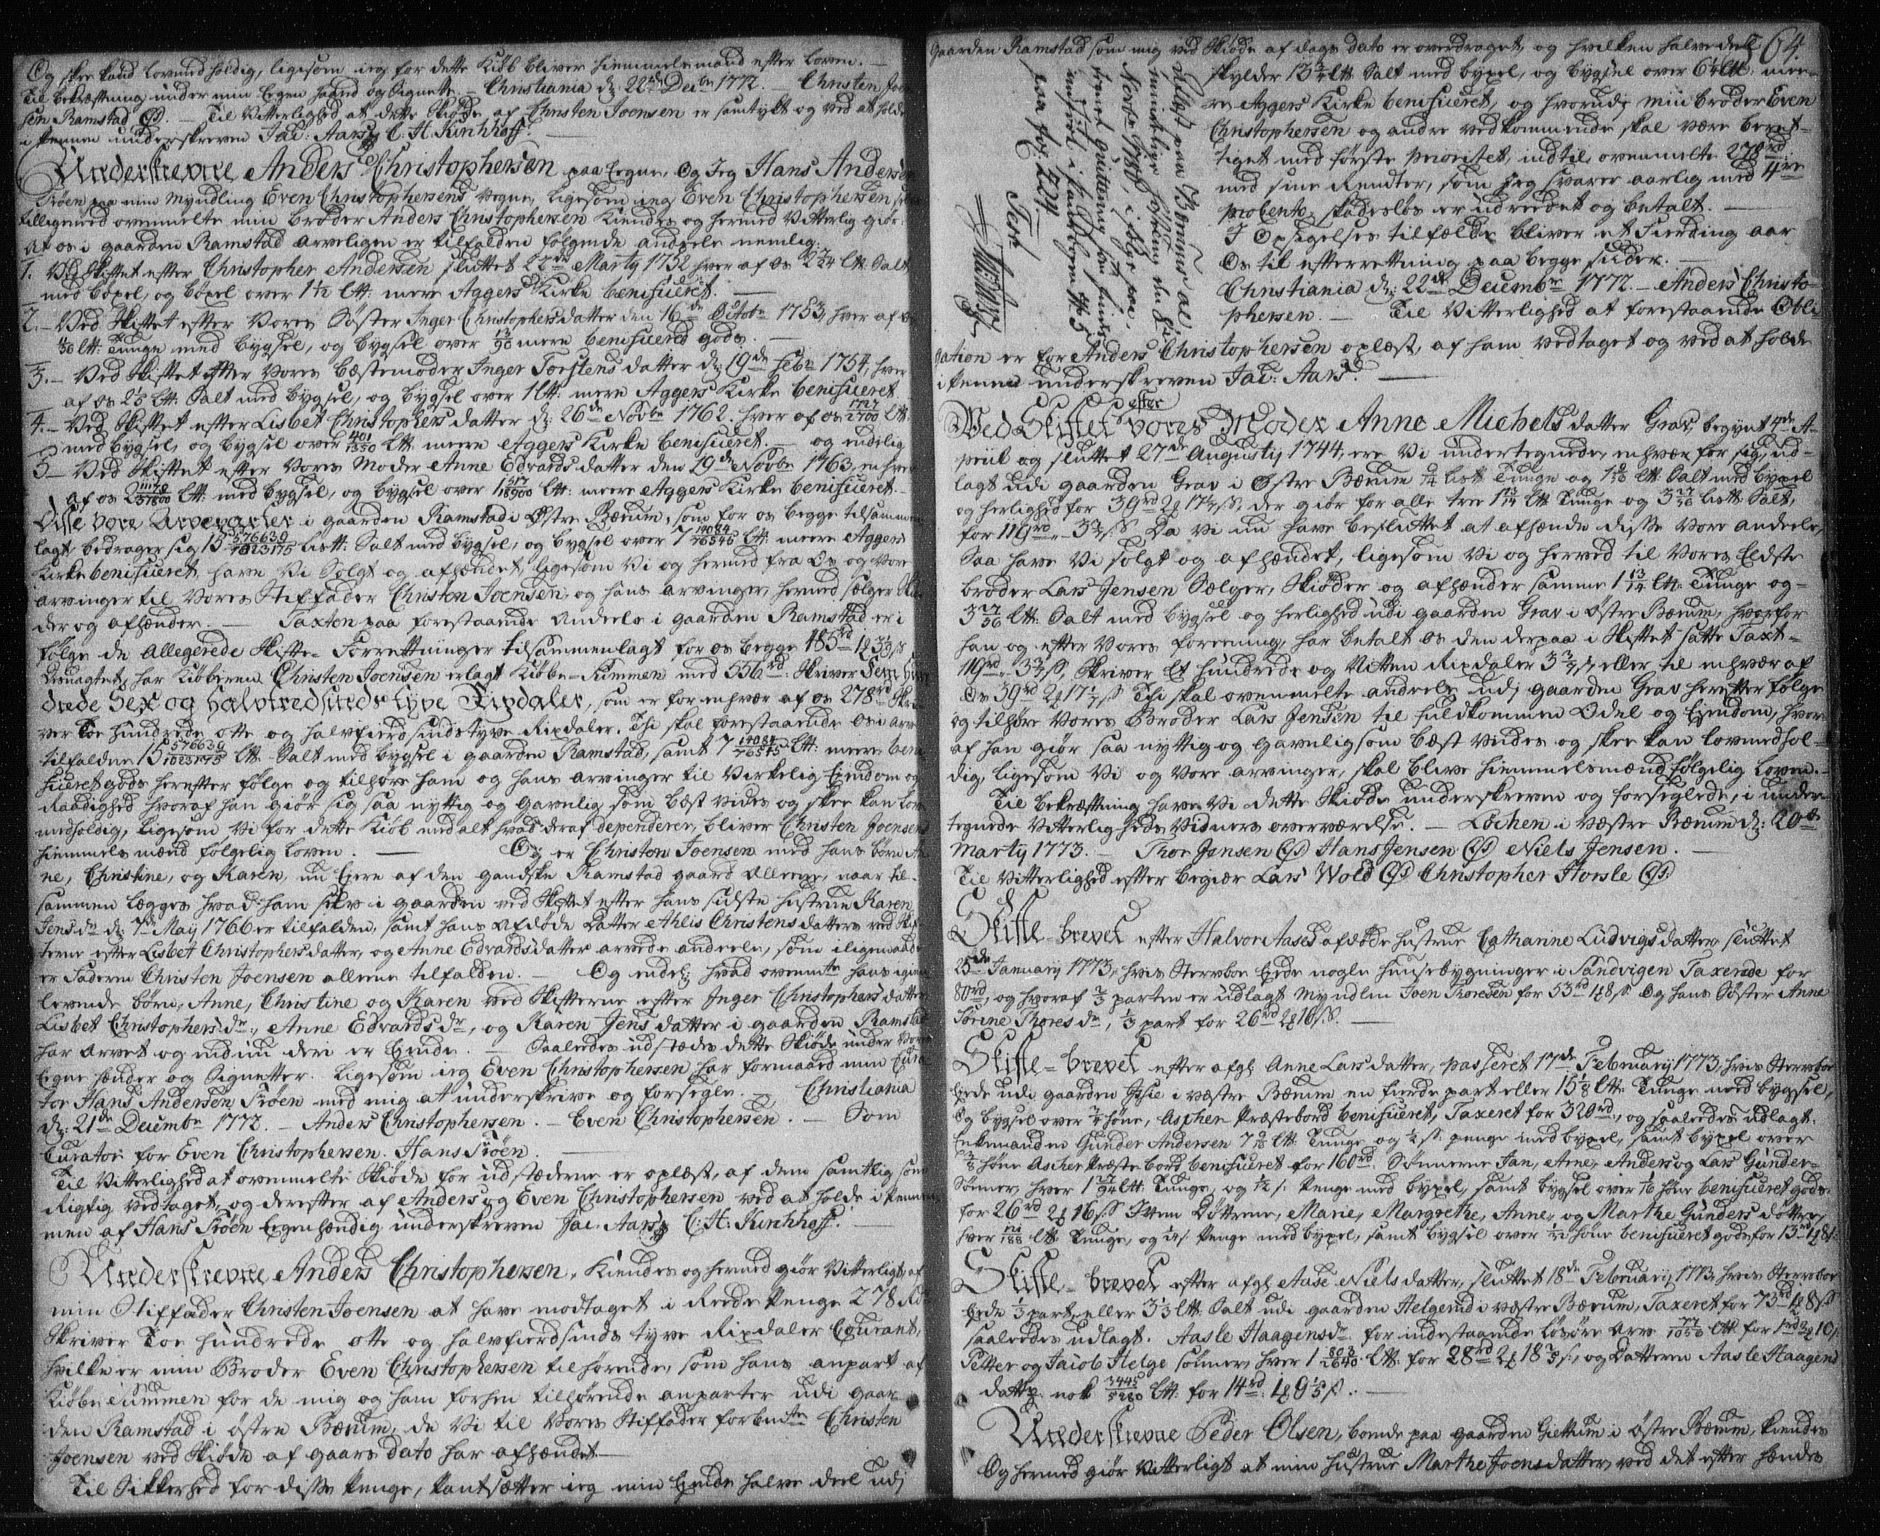 Og skee kand lovmedholdig, ligesom ieg for dette Kiøb bliver hiemmelsmand efter Loven. —
Til bekræftning under min Egen haand og Signete. – Christiania d: 22de Decbr 1772. — Christen Joen-
sen Ramstad (LS). — Til Vitterlighed at dette Skiøde af Christen Joensen er samtykt og ved at holde
i pennen underskreven Jac: Aars. C. H. Kirchhoff.
Underskrevne Anders Christophersen paa Egne, Og Jeg Hans Andersen
Frøen paa min Myndling Even Christophersens Vegne, ligesom ieg Even Christophersen, selv
tilligemed ovenmelte min broder Anders Christophersen Kiendes og hermed Vitterlig giør:
At os i gaarden Ramstad arveligen er tilfalden følgende andeele nemlig:
1. Ved Skiftet efter Christopher Andersen sluttet 22de Martj 1752 hver af os 2 ltt: Salt
med bøxel, og bøxel over 1 1/2 ltt: mere Aggers Kirke benificeret. —
2. – Ved Skiftet efter Vores Søster Inger Christophersdatter den 16de Octobr 1753 hver af os
ltt: Tunge med bygsel, og bygsel over mere benificered gods. —
3. – Ved Skiftet efter Vores bæstemoder Inger Torstensdatter d: 19de Febr 1754, hver
af os ltt: Salt med bygsel, og bygsel over 1 ltt: mere Aggers Kirke benificeret
4. – Ved Skiftet efter Lisbet Christophersdatter d: 26de Novbr 1762, hver af os ltt:
med bygsel, og bygsel over 401/1350 ltt: mere Aggers Kirke benificeret. — og endelig
5 – Ved Skiftet efter Vores Moder Anne Edvardsdatter den 29de Novbr 1763, enhver
af os ltt: med bygsel, og bygsel over ltt: mere Aggers Kirke benificeret.
Disse vore Arveparter i gaarden Ramstad i Østre Bærum, som for os begge tilsammen-
lagt, bedrager sig 15 576639/1023175 Listt: Salt med bygsel, og bygsel over 7 ltt: mere Aggers
Kirke benificeret, have Vi Solgt og afhændet, ligesom Vi og hermed fra Os og Vore
arvinger til Vores Stiffader Christen Joensen og hans arvinger, hermed sælger skiø-
der og afhænder. — Taxten paa forestaaende Andeele i gaarden Ramstad er i
følge de Allegerede Skifte-Forretninger tilsammenlagt for os begge 185rd 1
Desuagtet, har Kiøberen Christen Joensen erlagt Kiøbe-Summen med 556rd: Skriver Fem hun-
drede Sex og halvtredsinds tyve Rixdaler, som for enhver af os 278rd Skri-
ver Toe hundrede otte og halvfierdsinds tyve Rixdaler. Thi skal forestaaende os i arv
tilfaldne 15 576639/1023175 ltt: Salt med bygsel i gaarden Ramstad, samt 7 ltt: mere bene-
ficeret gods herefter følge og tilhøre ham og hans arvinger til Virkelig Eiendom og
Raadighed hvoraf han giør sig saa nyttig og gavnlig som bæst vides og skee kan lov-
medholdig, ligesom Vi for dette Kiøb med alt hvad deraf dependerer, bliver Christen Joensens
hiemmels mænd følgelig Loven. — Og er Christen Joensen med hans børn An-
ne, Christine, og Karen, nu Eiere af den gandske Ramstad gaard Allerene, naar til-
sammen lægges hvad ham selv i gaarden ved Skiftet efter hans sidste hustrue Karen
Jensdr d: 7de May 1766 er tilfalden, samt hans Afdøde Datter Ahlis Christensdatters ved Skif-
terne efter Lisbet Christophersdatter, og Anne Edvardsdatter arvede andeele, som iligemaade
er Faderen Christen Joensen allene tilfalden. — Og endel: hvad ovenmte hans igien
levende børn, Anne, Christine og Karen ved Skifterne efter Inger Christophersdatter,
Lisbet Christophersdr, Anne Edvardsdr, og Karen Jensdatter i gaarden Ramstad
har arvet og endnu deri er Eiende. — Saaledes udstædes dette Skiøde under Vores
Egne hænder og Signetter. Ligesom ieg Even Christophersen har formaaed min Cura-
tor Hans Andersen Frøen med mig at underskrive og forsegle. — Christiania
d: 21de Decembr 1772. — Anders Christophersen. – Even Christophersen. — Som
Curator for Even Christophersen. Hans Frøen. —
Til Vitterlighed at ovenmelte Skiøde for udstæderne er oplæst, af dem samtlig som
Rigtig vedtaget, og derefter af Anders og Even Christophersen ved at holde i Pennen
men af Hans Frøen Egenhændig underskreven Jac. Aars. C: H. Kirchhoff. —
Underskrevne Anders Christophersen, Kiendes og hermed giør Vitterligt, af
min Stiffader Christen Joensen at have modtaget i Rede Penge 278 Rd
Skriver Toe hundrede otte og halvfierdsinds tyve Rixdaler Courant,
hvilke er min Broder Even Christophersen tilhørende, som hans anpart af
Kiøbe Summen for de mig og ham forhen tilhørende anparter udi gaar-
den Ramstad i østre Bærum, de Vi til Vores Stiffader forbemte Christen
Joensen ved Skiøde af gaars dato har afhændet —
Til Sikkerhed for disse Penge, Pantsætter ieg min Eiende halve deel udj
64.
gaarden Ramstad som mig ved Skiøde af dags dato er overdraget, og hvilken halve deel
skylder ltt: Salt med byxel, og bygsel over ltt: mee-
re Aggers Kirke benificeret, og hvorudj min broder Even
Christophersen og andre vedkommende skal være beret-
tiget med første prioritet, indtil ovenmelte 278rd
med sine Rendter, som ieg svarer aarlig med 4re
procento, skadesløs er udredet og betalt. —
I Opsigelses tilfælde bliver et Fierding aar
Os til efterretning paa begge sider. —
Christiania d: 22de Decembr 1772. — Anders Christo-
phersen. — Til Vitterlighed at forestaaende Obli-
gation er for Anders Christophersen oplæst, af ham vedtaget og ved at holde
i Pennen underskreven Jac: Aars. —
Ved Skiftet efter vores Moder Anne Michelsdatter Grav, begynt 4de A-
priil og sluttet 27de Augustj 1744, ere Vi undertegnede, enhver for sig, ud-
lagt udi gaarden Grav i Østre Bærum Listt Tunge og ltt. Salt med bygsel
og herlighed for 39rd 2 17 ß, der giør for alle tre ltt Tunge og 3 27/56 listt Salt,
for 119rd - 3 ß. Da Vi nu have besluttet at afhænde disse Vore andeele,
Saa have Vi solgt og afhændet, ligesom Vi og herved til Vores Eldste
broder Lars Jensen Sælger, Skiøder og afhænder samme 1 13/14 ltt: Tunge og-
3 27/56 ltt: Salt med bygsel og herlighed udi gaarden Grav i østre Bærum, hvorfor
han og efter Vores foreening, har betalt os den derpaa i Skiftet satte Taxt-
119rd - 3 ß, Skriver Et hundrede og Nitten Rixdaler 3 ß eller til enhver af
Os 39rd 2 17 ß. Thi skal ovenmelte andeele udj gaarden Grav herefter følge
og tilhøre Vores Broder Lars Jensen til fuldkommen Odel og Eiendom, hvor-
af han giør saa nyttig og gavnlig som bæst vides og skee kan lovmedhol-
dig, ligesom Vi og vore arvinger, skal blive hiemmelsmænd følgelig Loven. —
Til bekræftning have Vi dette Skiøde underskreven og forseglede, i under-
tegnede Vitterligheds Vidners overværelse. — Løchen i Væstre Bærum d: 20de
Martj 1773. — Thor Jensen (LS) Hans Jensen (LS) Niels Jensen. —
Til Vitterlighed efter begiær Lars Wold (LS) Christopher Horsle (LS)
Skifte-brevet efter Halvor Aases afdøde hustrue Catharine Ludvigsdatter, sluttet
25de January 1773, hvis Sterrboe Eiede nogle huusebygninger i Sandvigen Taxerede for
80rd, og hvoraf 2/3 parten er udlagt Myndlen Joen Thoresen for 53rd 1 8 ß. Og hans Søster Anne
Sirine Thoresdr, 1/3 part for 26rd 2 16 ß. —
Skifte-brevet efter afg: Anne Larsdatter, passeret 17de Februarij 1773, hvis Sterrboe
Eiede udi gaarden Jssie i væstre Bærum en fierde part eller 15 1/8 ltt: Tunge med bygsel,
Og bygsel over høne, Ascher Præstebord benificeret, Taxeret for 320rd, og saaledes udlagt.
Enkemanden Gunder Andersen 7 9/16 ltt: Tunge, og ß: penge med byxel, samt byxel over
høne Ascher Præstebord benificeret for 160rd. Sønnerne Jan, Arne, Anders og Lars Gunder-
Sønner, hver ltt. Tunge, og ß: Penge med byxel, samt bygsel over høne benificeret gods
for 26rd 2 16 ß. Ittem Døttrene, Marie, Margrethe, Anne, og Marthe Gunders døtter,
hver ltt: Tunge, og ß: Penge med byxel, samt bygsel over høne benificeret gods for 13rd 1 8 ß:
Skifte-brevet efter afg: Aase Nielsdatter, Sluttet 18de Februarij 1773, hvis Sterrboe
Eiede part, eller ltt: Salt udi gaarden Helgerud i væstre Bærum, Taxeret for 73rd 1 8 ß
saaledes udlagt. Aasle Haagensdr for indestaaende løsøre Arv 77/1056 ltt: for 1rd 2 10 ß.
Petter og Jacob Helge sønner, hver ltt: for 28rd 2 18 ß:, og Datteren Aasle Haagens
datter: nok 3445/5280 ltt: for 14rd: 1 9 ß. —
Underskrevne Peder Olsen, boende paa gaarden Giettum i østre Bærum, kiendes
Og hermed giør Vitterligt at min hustrue Marthe Joensdatter, ved det efter hændes